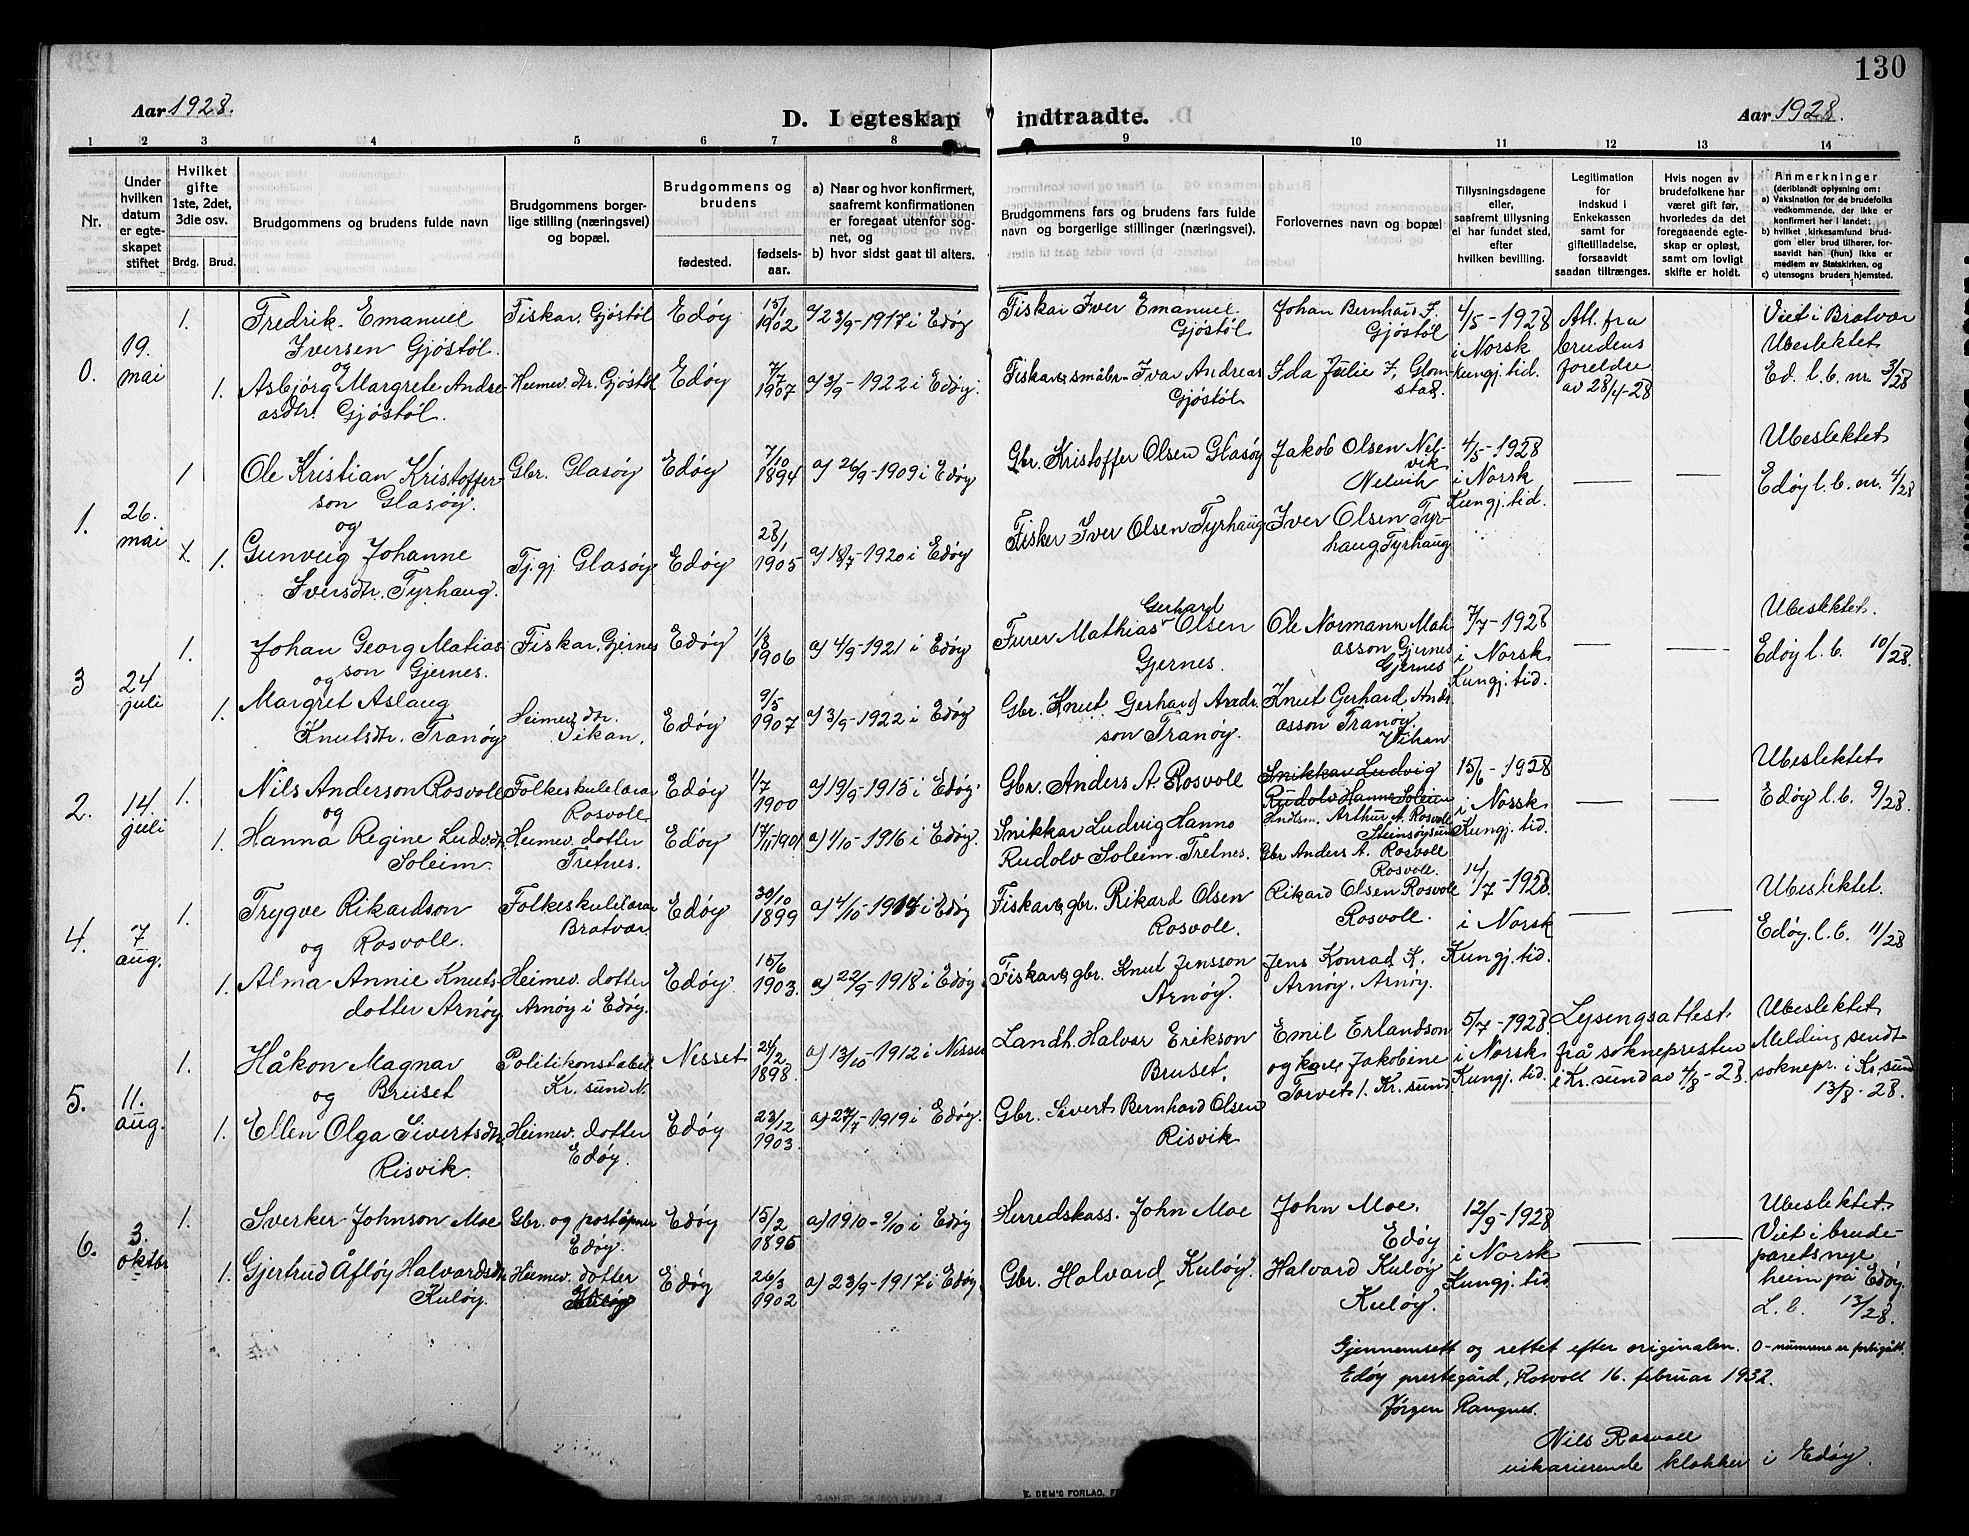 130
Aar 1928.
D. I egteskap indtraadte.
Aar 1928.
1 2 3 4 5 6 7 8 9 10 11 12 13 14
Nr.
Under hvilken datum er egteskapet stiftet
Hvilket gifte 1ste, 2det, 3die osv.
Brdg. Brud.
Brudgommens og brudens fulde navn
Brudgommens borgerlige stilling (næringsvei) og bopæl.
Brudgommens og brudens
fødested. fødselsaar.
a) Naar og hvor konfirmert, saafremt konfirmationen er foregaat utenfor sognet, og
b) hvor sidst gaat til alters.
Brudgommens fars og brudens fars fulde navn og borgerlige stillinger (næringsvei).
Forlovernes navn og bopæl
Tillysningsdagene eller, saafremt tillysning ei har fundet sted, efter hvilken bevilling.
Legitimation for indskud i Enkekassen samt for giftetilladelse, forsaavidt saadan tiltrænges.
Hvis nogen av brudefolkene har været gift før, hvorledes da det foregaaende egteskap er opløst, samt om lovligt skifte er holdt.
Anmerkninger
(deriblandt oplysning om:
a) Vaksination for de brudefolks vedkommende, der ikke er konfirmert her i landet;
b) hvilket kirkesamfund brudgom eller brud tilhører, forsaavidt han (hun) ikke er medlem av Statskirken, og
c) utensogns bruders hjemsted.
0. 19. mai
1. Fredrik Emanuel Iversen Gjøstøl. Fiskar. Gjøstøl Edøy 15/1 1902 a/ 23/9-1917 i Edøy
Fiskar Iver Emanuel Gjøstøl Johan Bernhard I. Gjøstøl 4/5-1928 i Norsk kungj. tid. Att. fra brudens foreldre av 28/4-28 Viet i Bratvær Ubeslektet Ed. l.b. nr. 3/28
og
1. Asbjørg Margrete Andreasdtr. Gjøstøl. Heimev. dtr. Gjøstøl Edøy 7/7 1907 a/ 3/9-1922 i Edøy.
Fiskar, småbr. Ivar Andreas Gjøstøl Ida Julie I. Glomstad.
1. 26. mai
1 Ole Kristian Kristofferson Glasøy. Gbr. Glasøy Edøy 7/10 1894 a) 26/9-1909 i Edøy
Gbr. Kristoffer Olsen Glasøy Jakob Olsen Nelvik Nelvik 4/5-1928 i Norsk Kungj. tid. — — Ubeslektet Edøy l.b. nr. 4/28
og
1. Gunveig Johanne Iversdtr. Tyrhaug. Tj.gj Glasøy Edøy 28/1 1905 a/ 18/7-1920 i Edøy
Fisker Iver Olsen Tyrhaug Iver Olsen Tyrhaug Tyrhaug
3 24 juli
1. Johan Georg Matiasson Gjernes. Fiskar. Gjernes Edøy 1/8 1906 a/ 4/9-1921 i Edøy
Furer Mathias Gerhard Olsen Gjernes. Ole Normann Matiasson Gjernes Gjernes 7/7-1928 i Norsk Kungj. tid. — — Ubeslektet. Edøy l.b. 10/28.
og
1. Margret Aslaug Knutsdtr. Tranøy Heimev. dtr. Vikan. Edøy 9/5 1907 a/ 3/9-1922 i Edøy
Gbr. Knut Gerhard Andr.son Tranøy. Knut Gerhard Andrasson Tranøy. Vikan
2. 14. juli
1. Nils Anderson Rosvoll Folkeskulelærar Rosvoll Edøy 1/7 1900 a/ 19/9-1915 i Edøy.
Gbr. Anders A. Rosvoll Snikkar Ludvig Rudolv Hanno Soleim Arthur A. Rosvoll Steinsøysund 15/6-1928 i Norsk Kungj. tid. — — Ubeslektet Edøy l.b. 9/28.
og
1. Hanna Regine Ludv.dtr. Soleim. Heimev. dotter Tretnes. Edøy 17/11 1901 a) 1/10-1916 i Edøy.
Snikkar Ludvig Hanno Rudolv Soleim. Tretnes. Gbr Anders A. Rosvoll Rosvoll.
4. 7 aug.
1. Trygve Rikardson Rosvoll. Folkeskulelærar Bratvær. Edøy 30/10 1899 a) 4/10-1914 i Edøy
Fiskar, gbr. Rikard Olsen Rosvoll. Rikard Olsen Rosvoll Rosvoll. 14/7-1928. i Norsk Kungj. tid. — — Ubeslektet. Edøy. l.b. 11/28
og
1. Alma Annie Knutsdotter Arnøy Heimev. dotter Arnøy i Edøy. Edøy 15/6 1903. a) 22/9-1918 i Edøy
Fiskar, gbr. Knut Jensson Arnøy. Jens Konrad K. Arnøy. Arnøy.
5. 11. aug.
1. Håkon Magnar Bruset Politikonstabel Kr. sund N. Nesset 24/2 1898. a) 13/10-1912 i Nesset
Landh. Halvar Erikson Bruset. Emil Erlandson og kone Jakobine Torvet 1. Kr. sund 5/7-1928 i Norsk Kungj. tid. Lysingsattest frå soknepresten i Kr. sund av 4/8-28. Ubeslektet Melding sendt soknepr. i Kr. sund 13/8-28.
og
1. Ellen Olga Sivertsdtr. Risvik. Heimev. dotter Edøy. Edøy 23/12 1903. a) 27/7-1919 i Edøy.
Gbr. Sivert Bernhard Olsen Risvik
6. 3. oktbr
1. Sverker Johnson Moe Gbr. og postopner Edøy. Edøy 15/2 1895 a) 1910-9/10 i Edøy
Herredskass. John Moe John Moe. Edøy 12/9-1928 i Norsk Kungj. tid — — Ubeslektet. Viet i brudeparets nye heim på Edøy. L.b. 13/28.
1. Gjertrud Åfløy Halvardsdtr Kuløy. Heimev. dotter Kuløy Edøy 26/3 1902 a) 23/9-1917 i Edøy.
Gbr. Halvard Kuløy. Halvard Kuløy Kuløy.
Gjennemsett og rettet efter originalen. 0-numrene er forbigått.
Edøy prestegård, Rosvoll 16. februar 1932.
Jørgen
Nils Rosvoll
vikarierende klokker i Edøy.